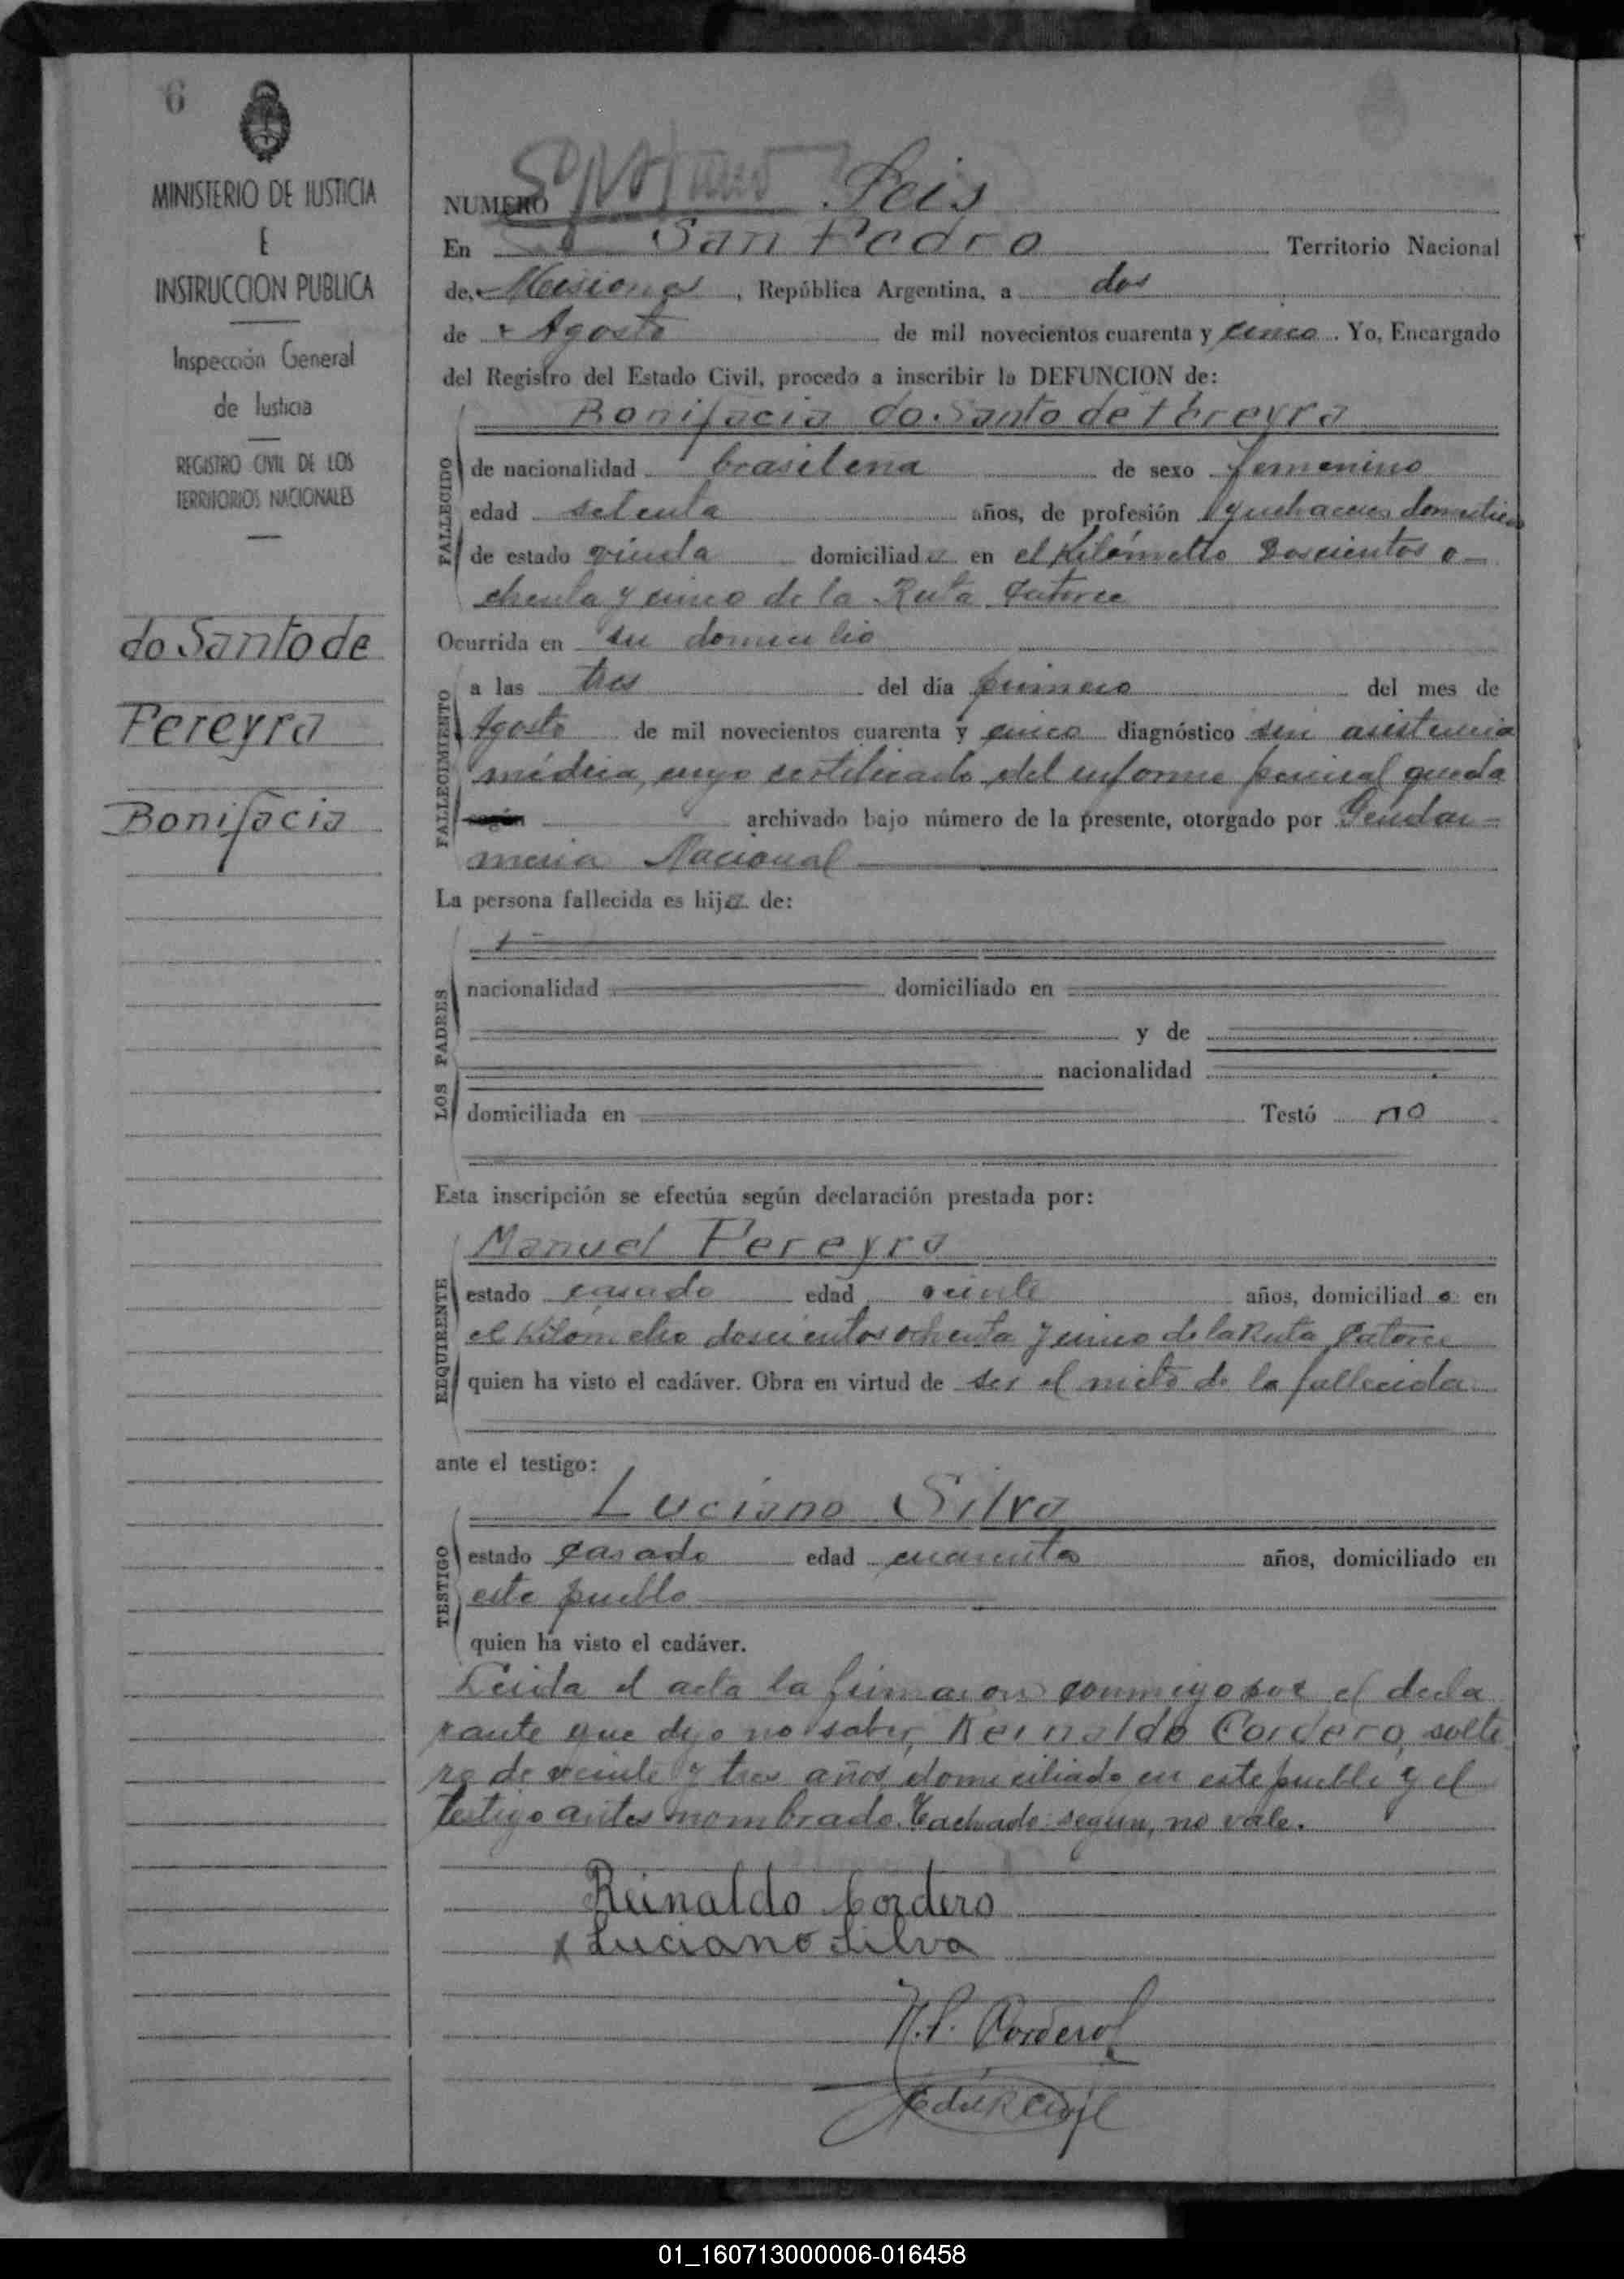 6
MINISTERIO DE JUSTICIA
E
INSTRUCCION PUBLICA
Inspección General
de Justicia
REGISTRO CIVIL DE LOS
TERRITORIOS NACIONALES
do Santo de
Pereyra
Bonifacia
NUMERO Seis
En San Pedro Territorio Nacional
de Misiones, República Argentina, a dos
de Agosto de mil novecientos cuarenta y cinco. Yo, Encargado
del Registro del Estado Civil, procedo a inscribir la DEFUNCION de:
Bonifacia do Santo de Pereyra
FALLECIDO
de nacionalidad brasilena de sexo femenino
edad setenta años, de profesión quehaceres domesticos
de estado viuda domiciliada en el Kilómetro Doscientos o-
chenta y cinco de la Ruta Catorce
Ocurrida en su domicilio
FALLECIMIENTO
a las tres del día primero del mes de
Agosto de mil novecientos cuarenta y cinco diagnóstico sin asistencia
médica, cuyo certificado del informe pericial queda
según archivado bajo número de la presente, otorgado por Gendar-
meria Nacional
La persona fallecida es hija de:
LOS PADRES
nacionalidad domiciliado en
y de
nacionalidad
domiciliada en Testó no
Esta inscripción se efectúa según declaración prestada por:
Manuel Pereyra
REQUIRENTE
estado casado edad veinte años, domiciliado en
el Kilómetro doscientos ochenta y cinco de la Ruta Catorce
quien ha visto el cadáver. Obra en virtud de ser el nieto de la fallecida
ante el testigo:
Luciano Silva
TESTIGO
estado casado edad cuarenta años, domiciliado en
este pueblo
quien ha visto el cadáver.
Leida el acta la firmaron conmigo por el decla
rante que dijo no saber, Reinaldo Cordero, solte
ro de veinte y tres años domiciliado en este pueblo y el
testigo antes nombrado. Tachado: segun, no vale.
Reinaldo Cordero
x Luciano Silva
Cordero
01_160713000006-016458